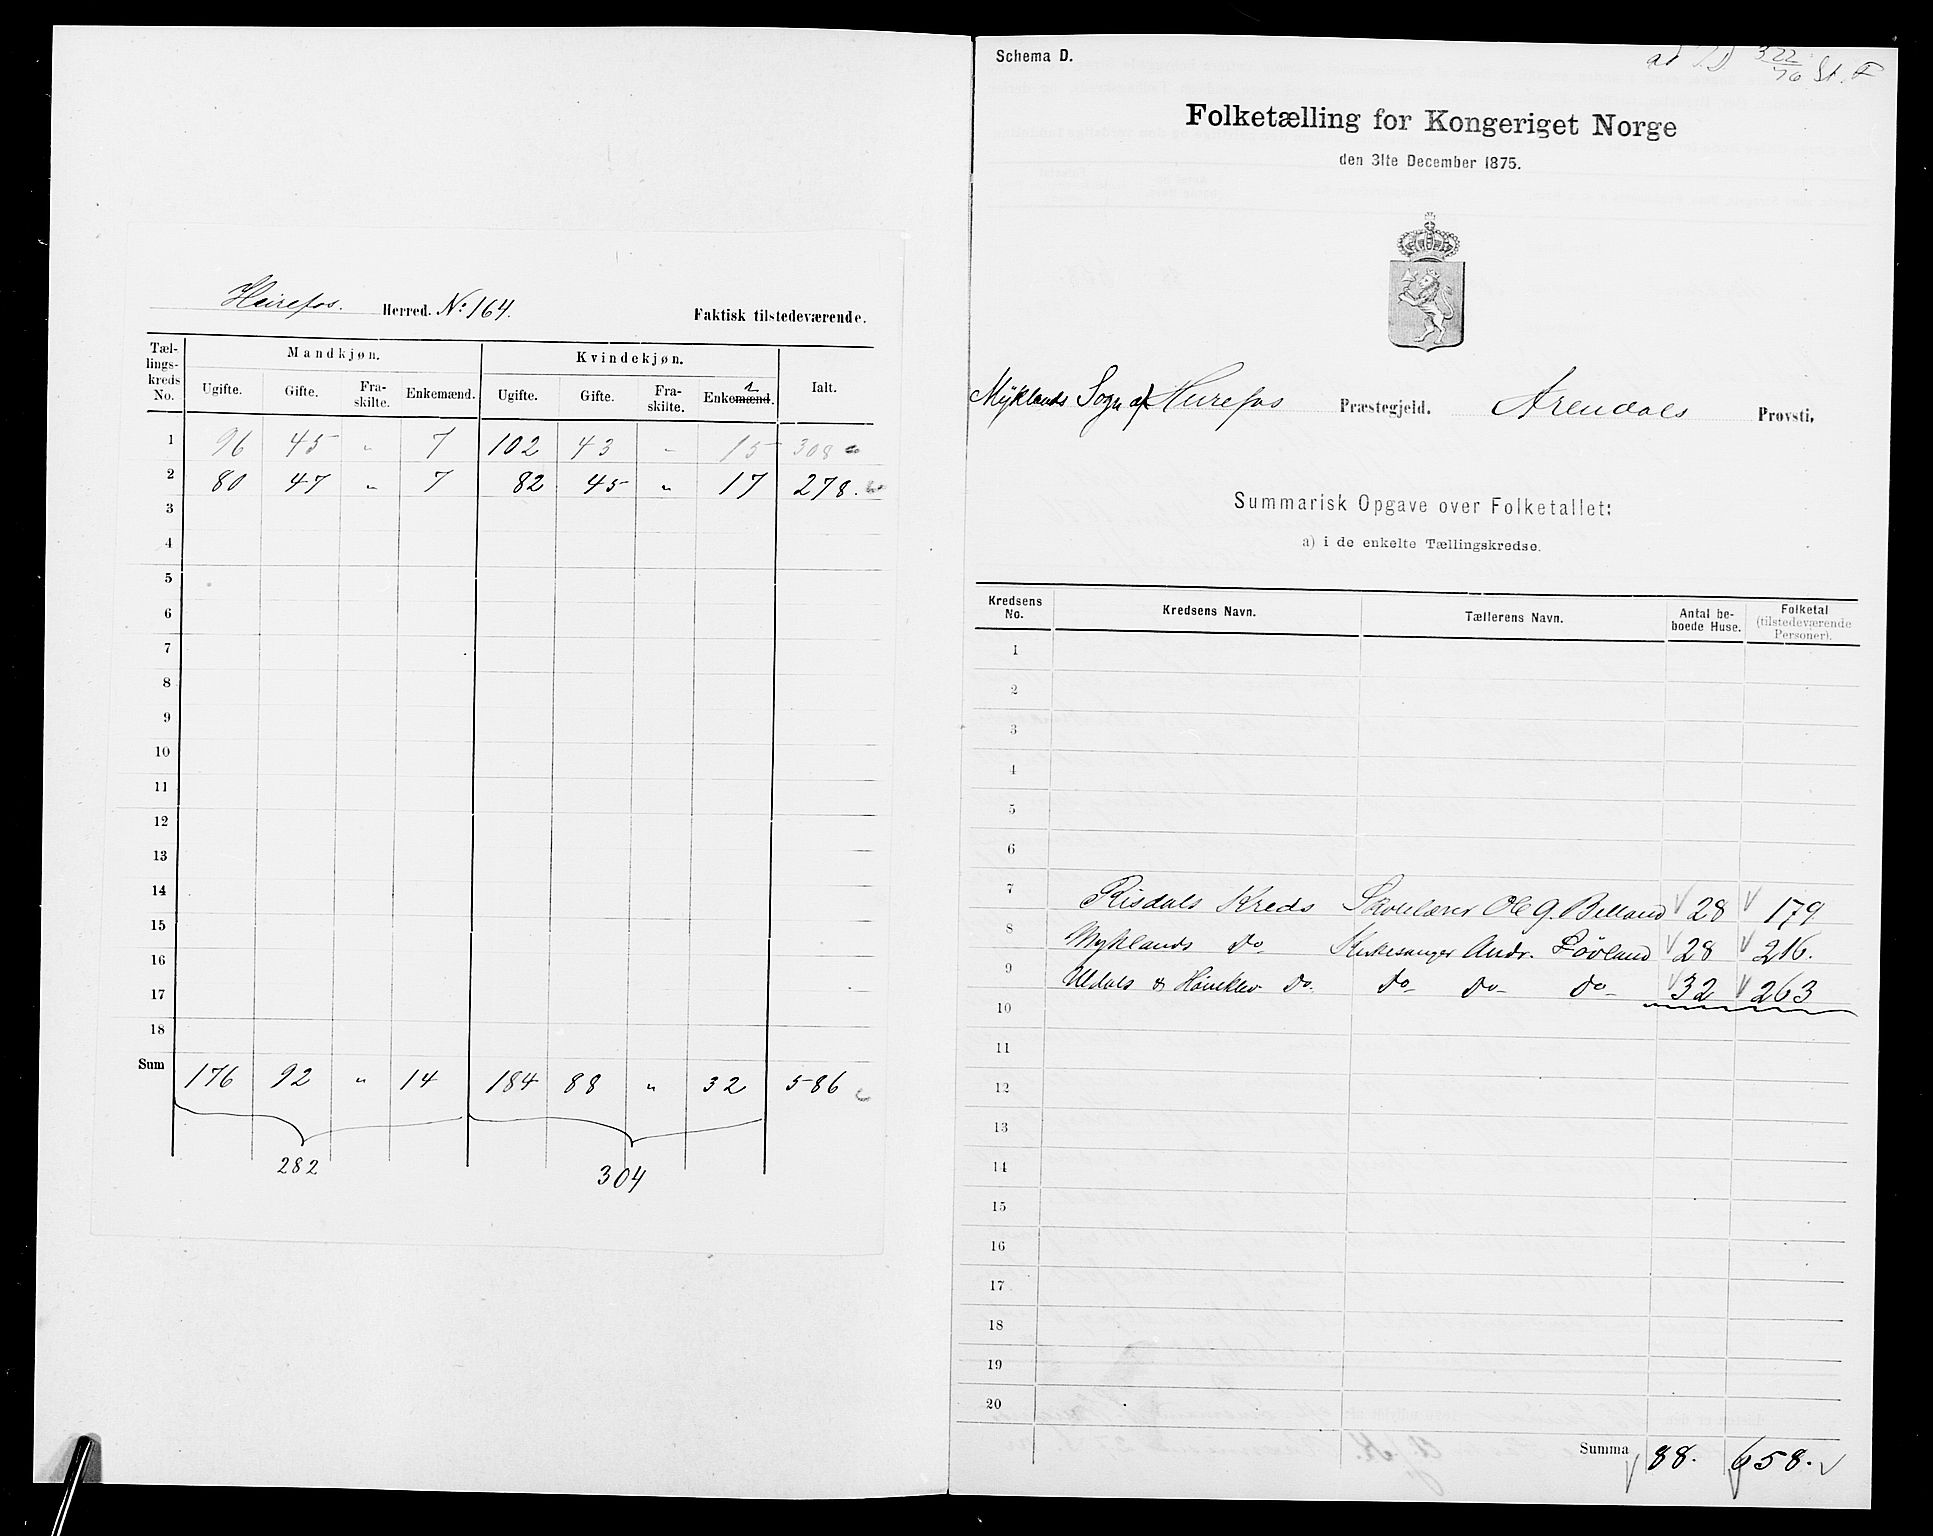 Heirefos. Herred. No. 164. Faktisk tilstedeværende.
Tællingskreds No. Mandkjøn. Kvindekjøn. Ialt.
Ugifte. Gifte. Fraskilte. Enkemænd. Ugifte. Gifte. Fraskilte. Enkemænd.
1 96 45 " 7 102 43 " 15 308
2 80 47 " 7 82 45 " 17 278.
3
4
5
6
7
8
9
10
11
12
13
14
15
16
17
18
Sum 176 92 " 14 184 88 " 32 586
282 304
Schema D.
322/76
Folketælling for Kongeriget Norge
den 31te December 1875.
Myklands Sogn af Herefos Præstegjeld. Arendals Provsti,
Summarisk Opgave over Folketallet:
a) i de enkelte Tællingskredse.
Kredsens No. Kredsens Navn. Tællerens Navn. Antal beboede Huse. Folketal (tilstedeværende Personer).
1
2
3
4
5
6
7 Risdals Kreds Skolelærer Ole G. Belland 28 179
8 Myklands Do Kirkesanger Andr. Løvland 28 216.
9 Uldals & Høvekler Do. Do Do Do 32 263
10
11
12
13
14
15
16
17
18
19
20
Summa 88. 658.